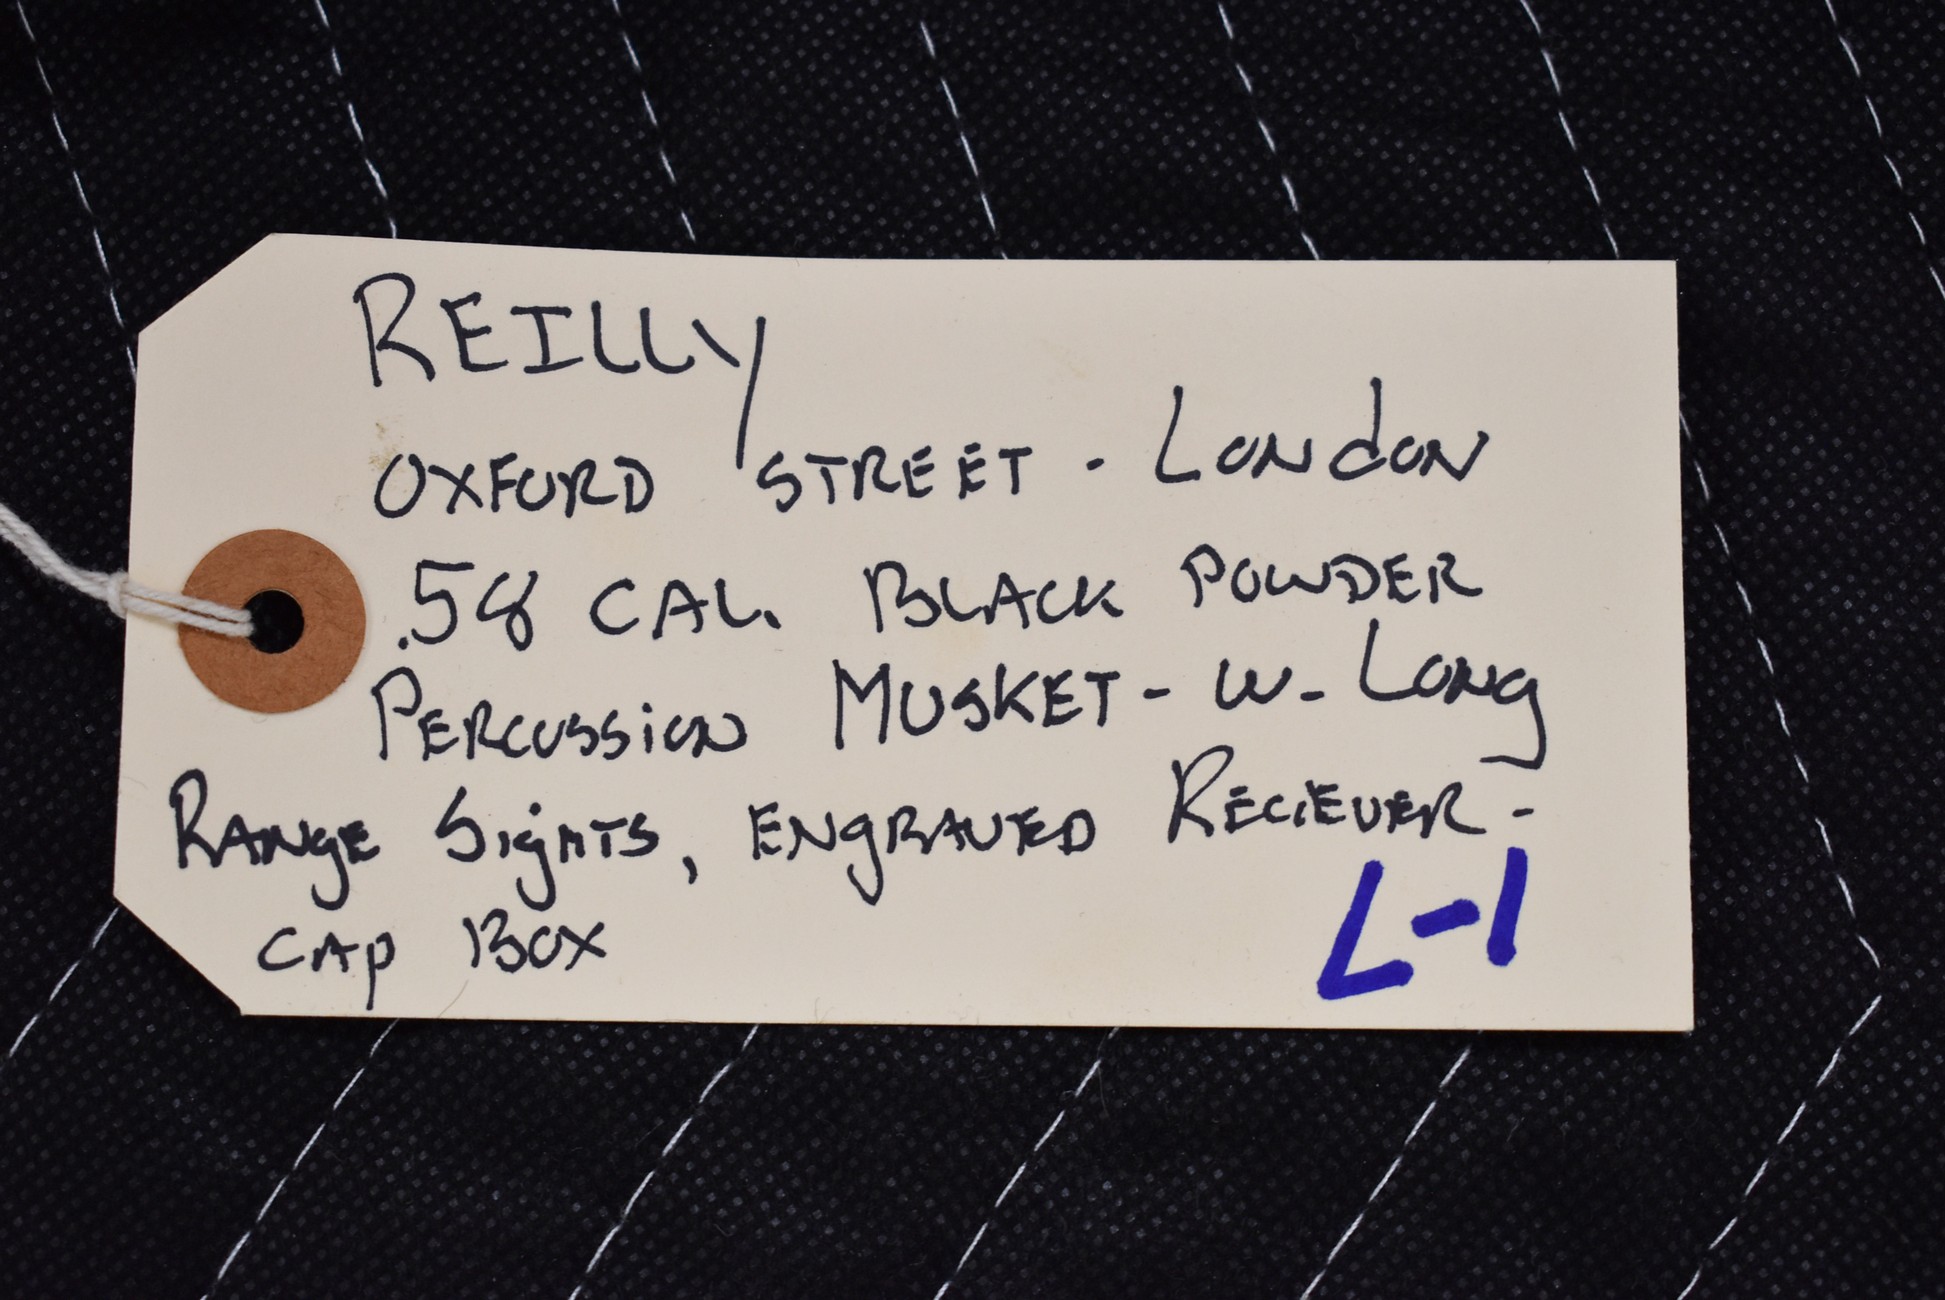 REILLY
OXFORD STREET - LONDON
.58 CAL. BLACK POWDER
PERCUSSION MUSKET - W- LONG
RANGE SIGHTS, ENGRAVED RECIEVER -
CAP BOX
L-1